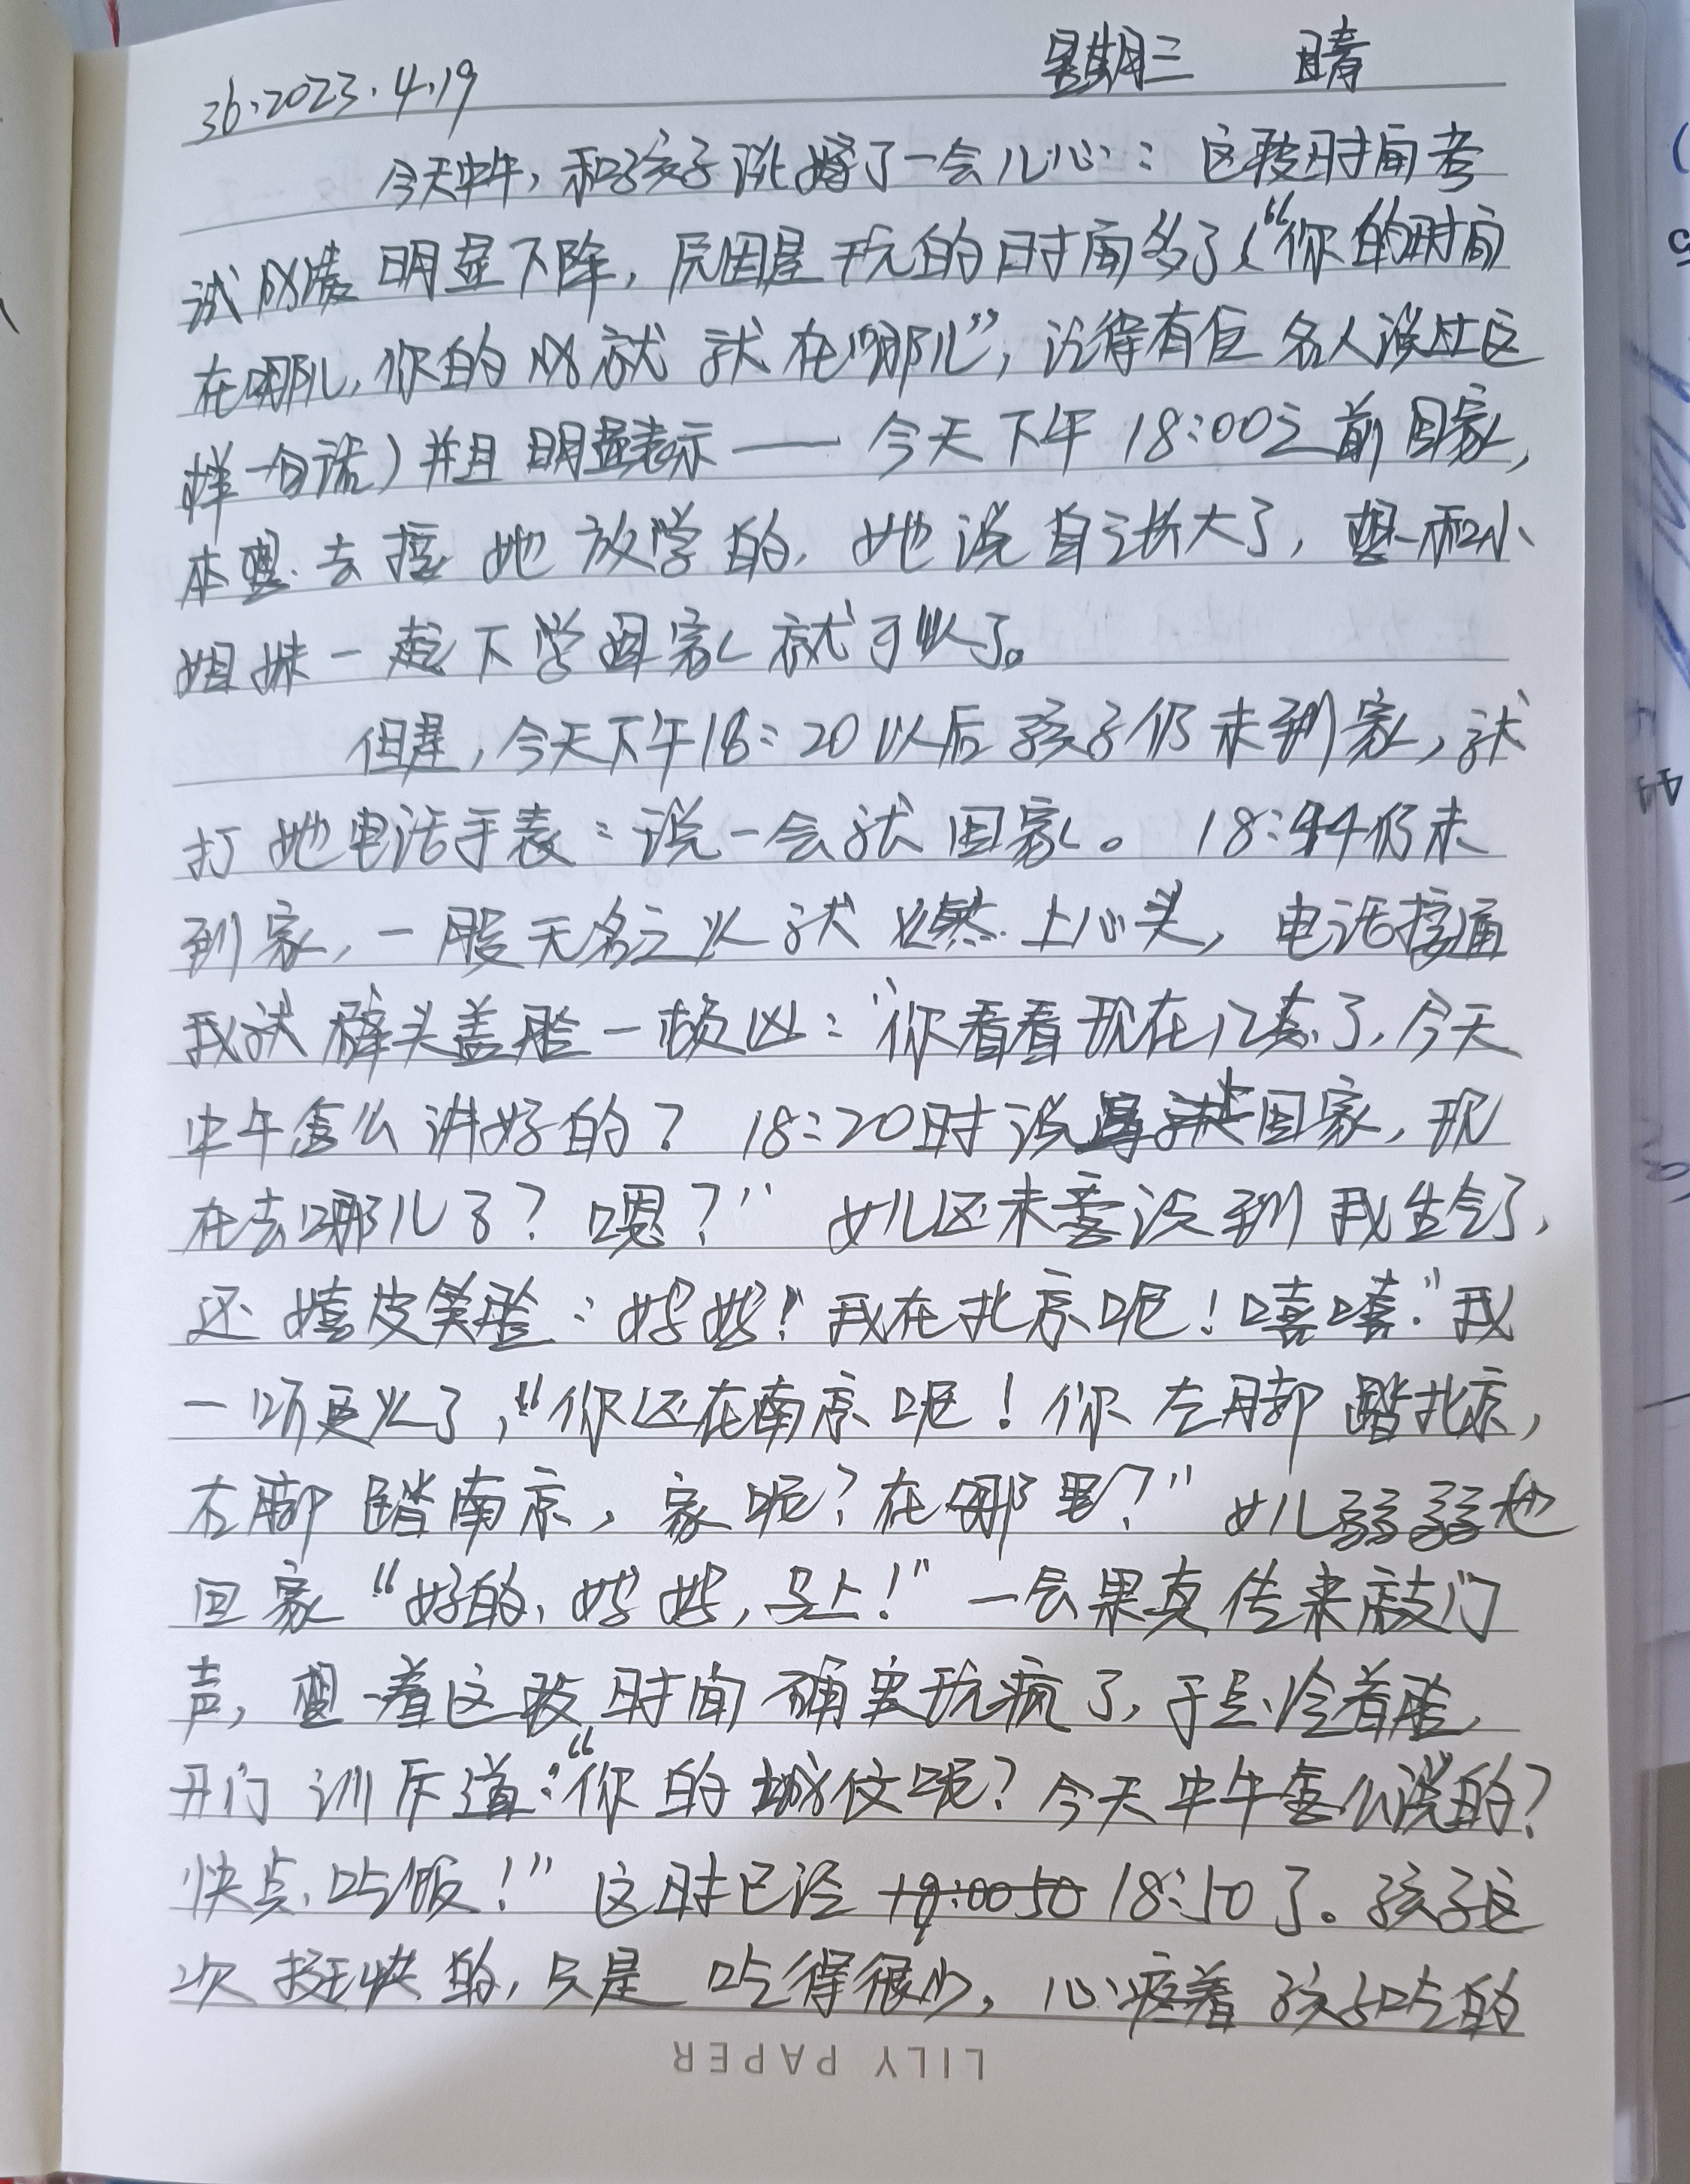 36.2023.4.19 星期三 晴
今天中午，和孩子谈了一会儿心：这段时间考
试成绩明显下降，原因是玩的时间多了（“你的时间
在哪儿，你的成就就在哪儿”，记得有位名人说过这
样一句话）并且明显表示——今天下午18:00之前回家，
本想去接她放学的，她说自己长大了，想和小
姐妹一起下学回家就可以了。
但是，今天下午18:20以后孩子仍未到家，就
打她电话手表：说一会就回家。18:44仍未
到家，一股无名之火就燃上心头，电话接通
我就劈头盖脸一顿凶：“你看看现在几点了，今天
中午怎么讲好的？18:20时说马上回家，现
在去哪儿了？嗯？”女儿还未意识到我生气了，
还嬉皮笑脸：妈妈！我在北京呢！嘻嘻.”我
一听更火了，“你还在南京呢！你左脚踏北京，
右脚踏南京，家呢？在哪里？”女儿弱弱地
回家“好的，妈妈，马上！”一会果真传来敲门
声，想着这段时间确实玩疯了，于是冷着脸，
开门训斥道：“你的诚信呢？今天中午怎么说的？
快点吃饭！”这时已经18:50了。孩子这
次挺快的，只是吃得很少，心疼着孩子吃的
LILY PAPER